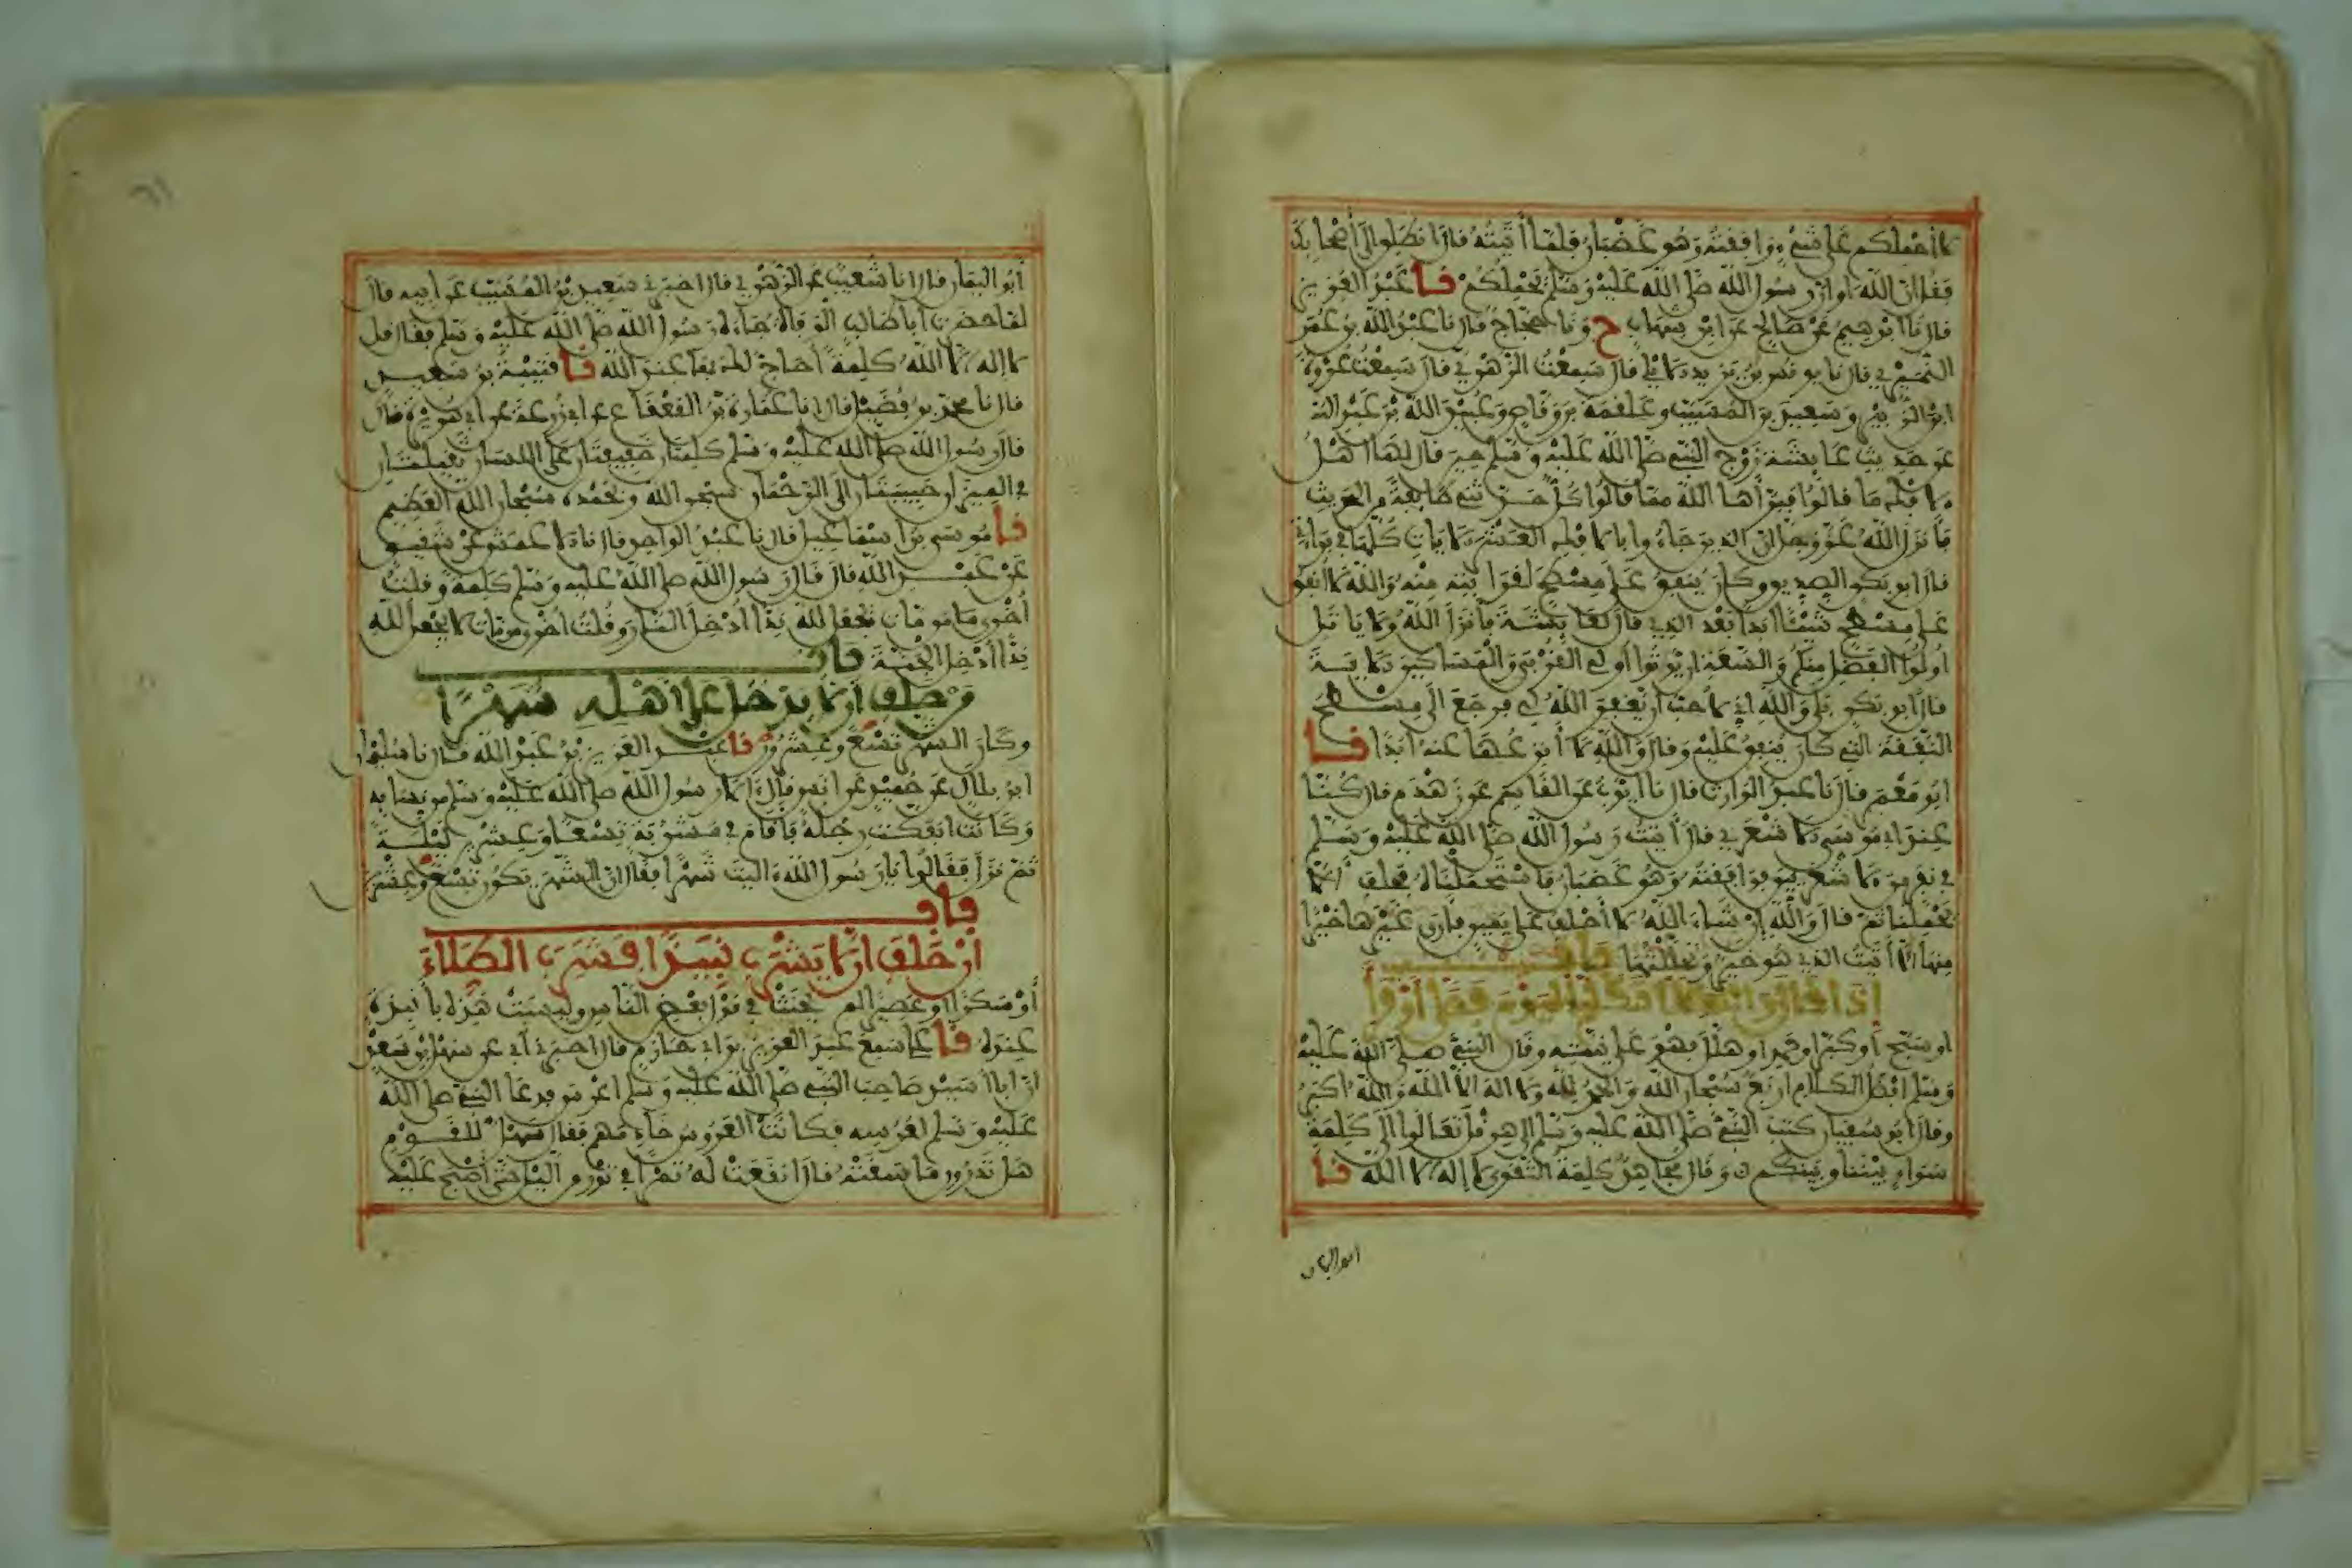 لا أحملكم على شيء ووافقته وهو غضبان فلما أتيته قال انطلق إلى أصحابك
فقل إن الله أو إن رسول الله صلى الله عليه وسلم يحملكم نا عبد العزيز
قال نا إبرهيم عن صالح عن ابن شهاب ح ونا حجاج قال نا عبد الله بن عمر
النميري قال نا يونس بن يزيد الأيلي قال سمعت الزهري قال سمعت عروة
ابن الزبير وسعيد بن المسيب وعلقمة بن وقاص وعبيد الله بن عبد الله
عن حديث عايشة زوج النبي صلى الله عليه وسلم حين قال لها أهل
الإفك ما قالوا فبرأها الله مما قالوا كل حدثني طايفة من الحديث
فأنزل الله عز وجل إن الذين جاءوا بالإفك العشر الآيات كلها في براءتي
قال أبو بكر الصديق وكان ينفق على مسطح لقرابته منه والله لا أنفق
على مسطح شيئا أبدا بعد الذي قال لعايشة فأنزل الله ولا ياتل
أولوا الفضل منكم والسعة أن يوتوا أولي القربى والمساكين الآية
قال أبو بكر بلى والله إني لأحب أن يغفر الله لي فرجع إلى مسطح
النفقة التي كان ينفق عليه وقال والله لا أنزعها عنه أبدا نا
أبو معمر قال نا عبد الوارث قال نا أيوب عن القاسم عن زهدم قال كنا
عند أبي موسى الأشعري قال أتيت رسول الله صلى الله عليه وسلم
في نفر من الأشعريين فوافقته وهو غضبان فاستحملناه فحلف ألا
يحملنا ثم قال والله إن شاء الله لا أحلف على يمين فأرى غيرها خيرا
منها إلا أتيت الذي هو خير وتحللتها باب
إذا قال والله لا أتكلم اليوم فصلى أو قرأ
أو سبح أو كبر أو حمد أو هلل فهو على نيته وقال النبي صلى الله عليه
وسلم أفضل الكلام أربع سبحان الله والحمد لله ولا اله إلا الله والله أكبر
وقال أبو سفيان كتب النبي صلى الله عليه وسلم إلى هرقل تعالوا إلى كلمة
سواء بيننا وبينكم وقال مجاهد كلمة التقوى لا إله إلا الله نا
ابو اليمان
أبو اليمان قال أنا شعيب عن الزهري قال أخبرني سعيد بن المسيب عن أبيه قال
لما حضرت أبا طالب الوفاة جاءه رسول الله صلى الله عليه وسلم فقال قل
لا إله إلا الله كلمة أحاج لك بها عند الله نا قتيبة بن سعيد
قال نا محمد بن فضيل قال نا عمارة بن القعقاع عن أبي زرعة عن أبي هريرة قال
قال رسول الله صلى الله عليه وسلم كلمتان خفيفتان على اللسان ثقيلتان
في الميزان حبيبتان إلى الرحمان سبحان الله وبحمده سبحان الله العظيم
نا موسى بن إسماعيل قال نا عبد الواحد قال نا الأعمش عن شقيق
عن عبد الله قال قال رسول الله صلى الله عليه وسلم كلمة وقلت
أخرى من مات يجعل لله ندا أدخل النار وقلت أخرى من مات لا يجعل لله
ندا أدخل الجنة باب
من حلف أن لا يدخل على أهله شهرا
وكان الشهر تسع وعشرون نا عبد العزيز بن عبد الله قال نا سليمان
ابن بلال عن حميد عن أنس قال آلا رسول الله صلى الله عليه وسلم من نسايه
وكانت انفكت رجله فأقام في مشربة تسعا وعشرين ليلة
ثم نزل فقالوا يا رسول الله آليت شهرا فقال إن الشهر يكون تسع وعشرين
باب
إن حلف أن لا يشرب نبيذا فشرب الطلاء
أو سكرا أو عصيرا لم يحنث في قول بعض الناس وليست هذه بأنبذة
عنده نا علي سمع عبد العزيز بن أبي حازم قال أخبرني أبي عن سهل بن سعد
أن أبا أسيد صاحب النبي صلى الله عليه وسلم أعرس فدعا النبي صلى الله
عليه وسلم لعرسه فكانت العروس خادمهم فقال سهل للقوم
هل تدرون ما سقته قال أنقعت له تمرا في تور من اليل حتى أصبح عليه